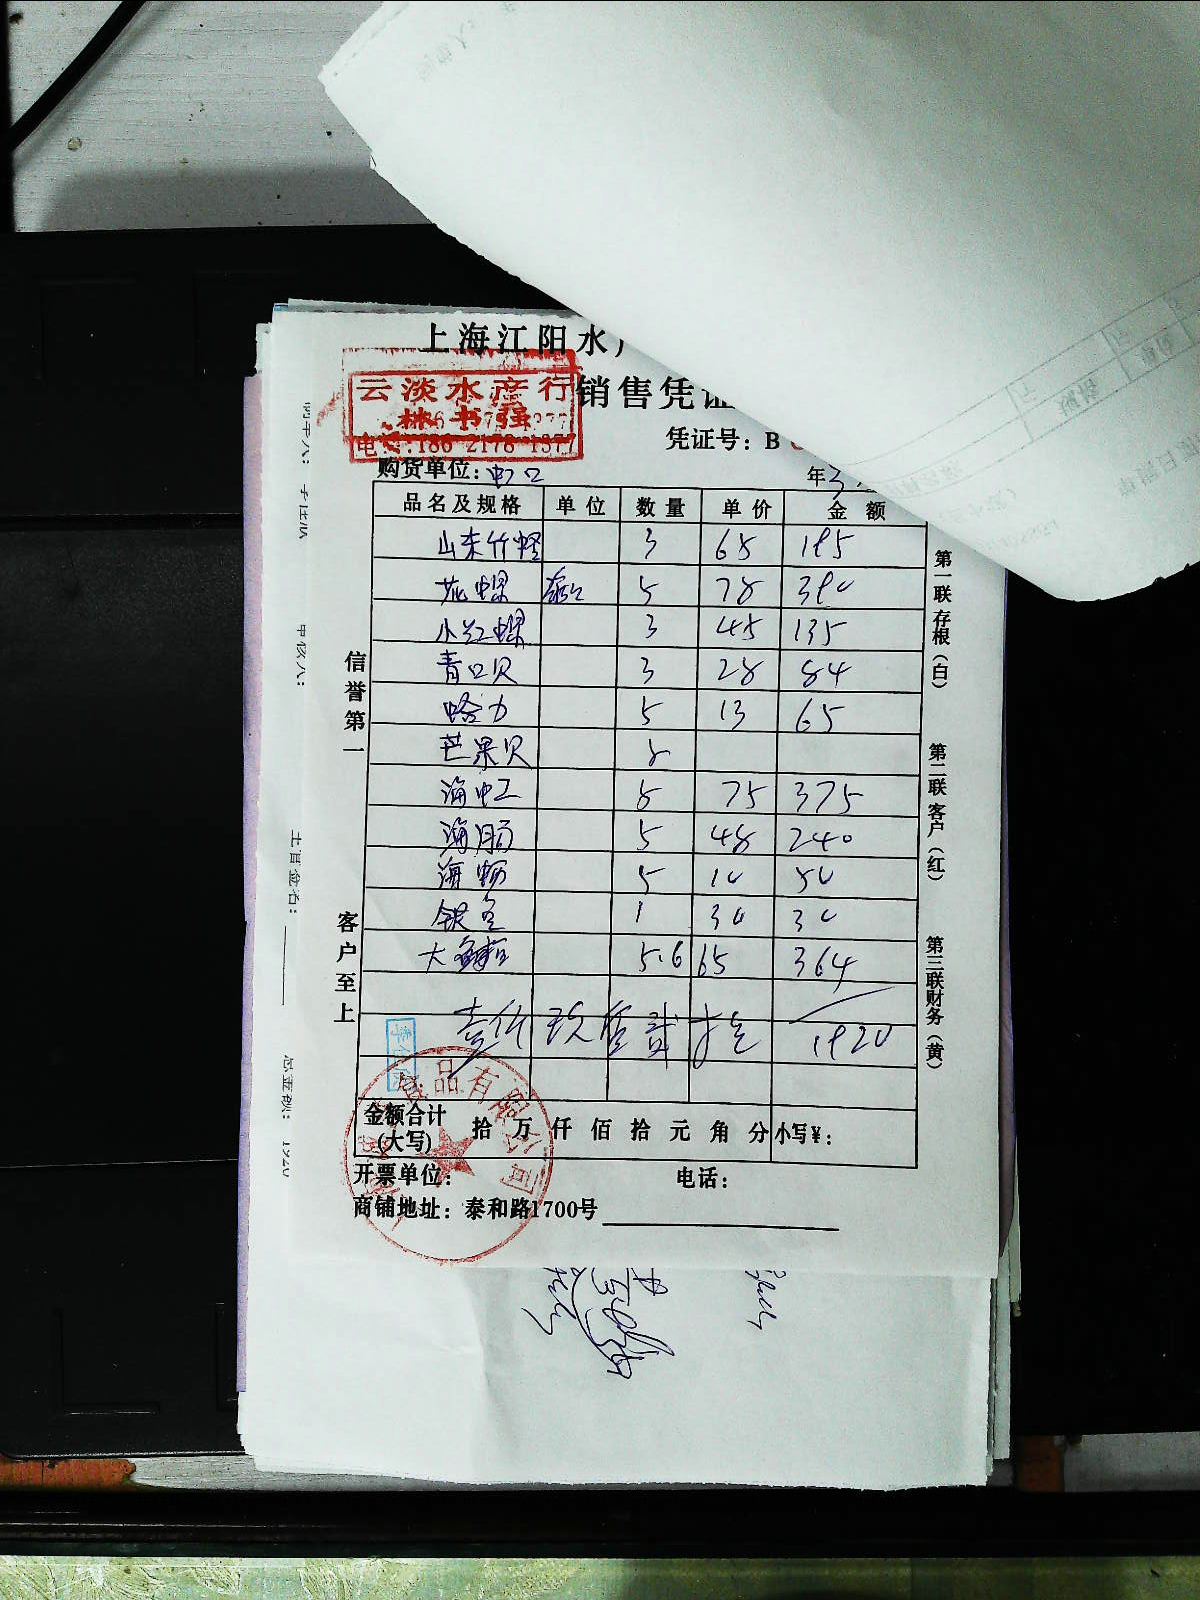 上海江阳水
销售凭证
云淡水产行
林书强
电话:186 2178 1377
凭证号:B
购货单位:虹口
年 3
品名及规格 单位 数量 单价 金额
山东竹蛏 3 65 195
花螺 5 78 390
小红螺 3 45 135
青口贝 3 28 84
哈力 5 13 65
芒果贝 8
海虹 5 75 375
海肠 5 48 240
海蛎 5 10 50
银鱼 1 30 30
大 5.6 65 364
壹仟玖佰贰拾元 1920
金额合计(大写) 拾 万 仟 佰 拾 元 角 分 小写¥:
开票单位: 电话:
商铺地址: 泰和路1700号
信誉第一
客户至上
第一联存根(白)
第二联客户(红)
第三联财务(黄)
食品有限公司